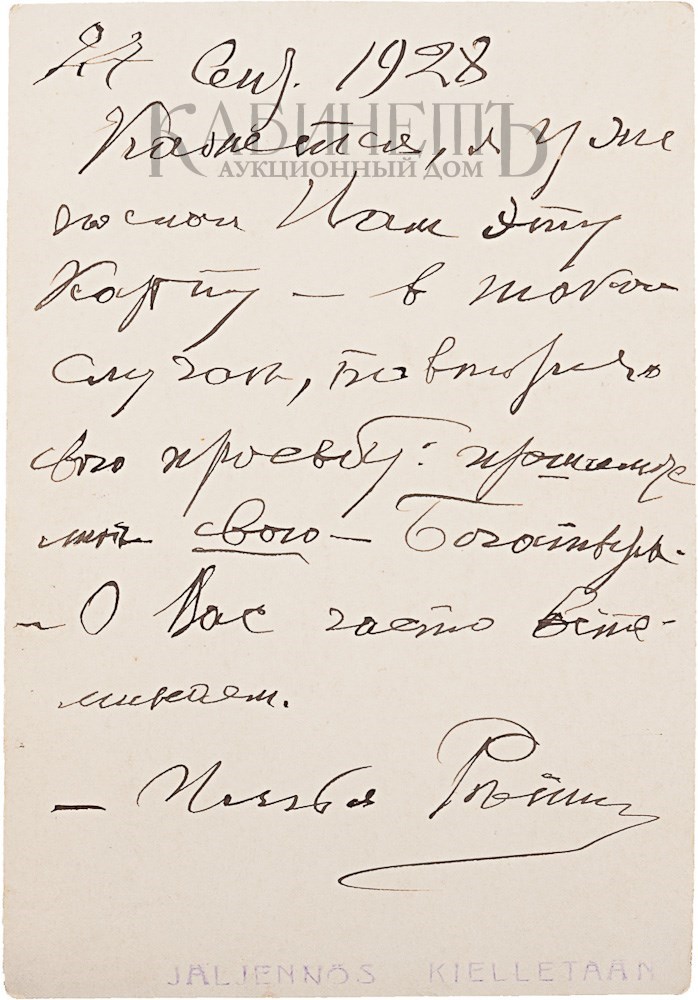 27 Сент. 1928
КАБИНЕТЪ
АУКЦИОННЫЙ ДОМ
Кажется, я уже
послал Вам эту
карту — в таком
случае, повторяю
свою просьбу: пришлите
мне свою —
— О Вас часто вспо-
минаем.
— Илья Репин
JÄLJENNÖS KIELLETÄÄN